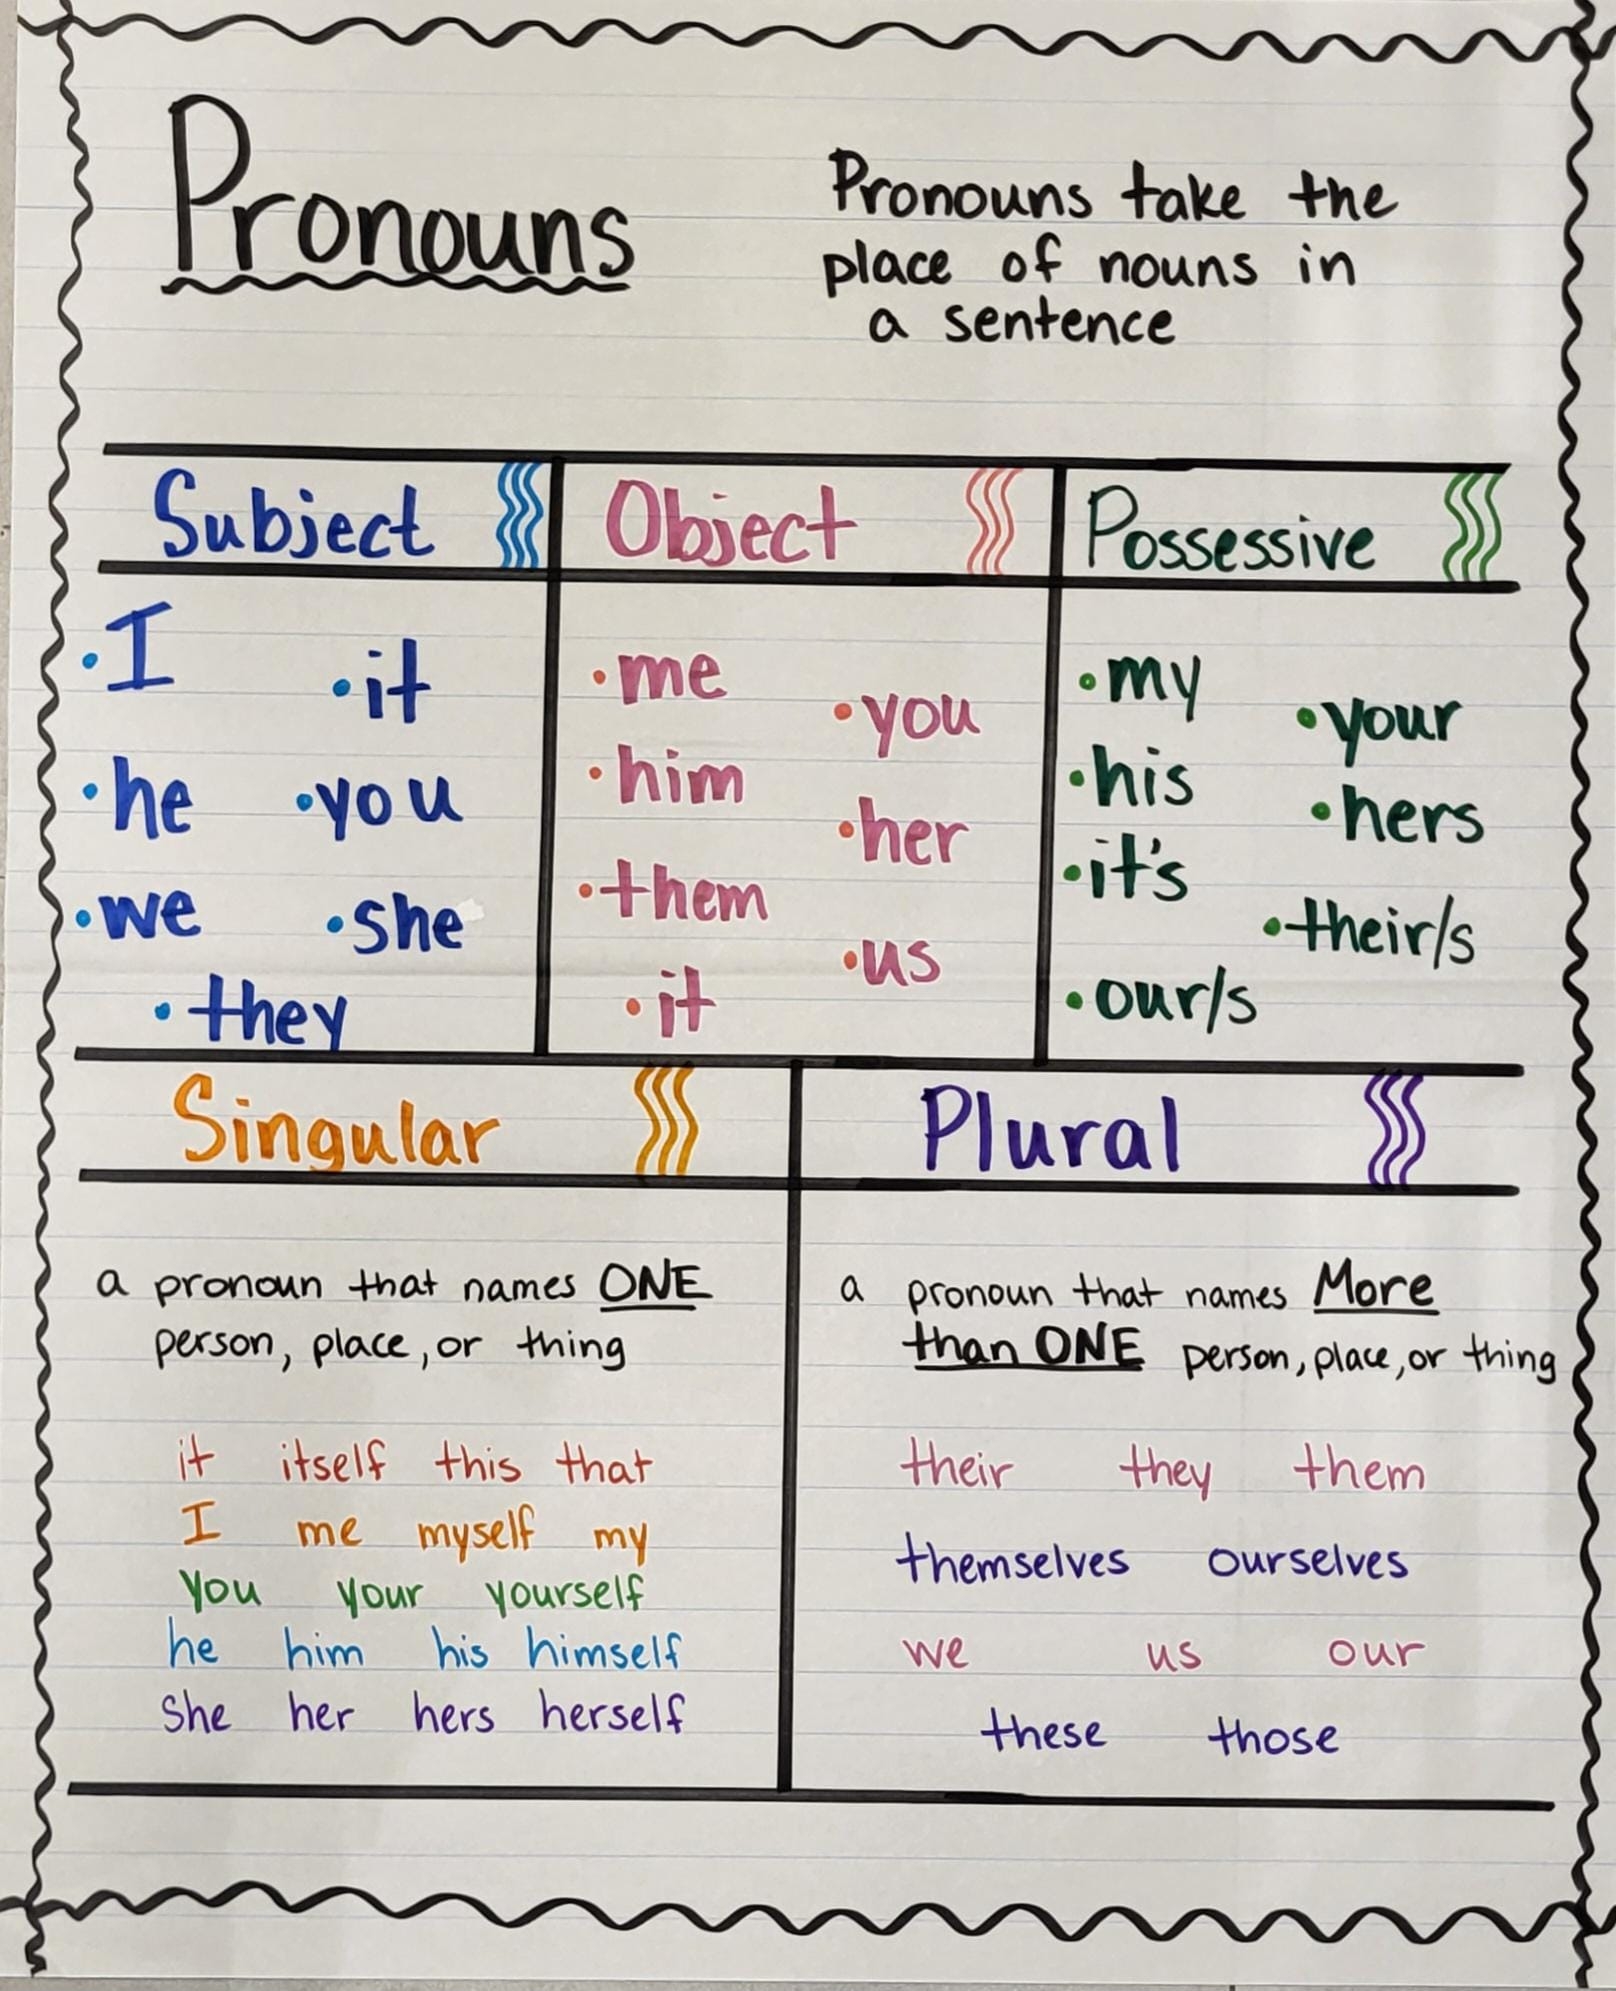 Pronouns
Pronouns take the
place of nouns in
a sentence
Subject
•I •it
•he •you
•we •she
•they
Object
•me •you
•him •her
•them •us
•it
Possessive
•my •your
•his •hers
•it's •their/s
•our/s
Singular
a pronoun that names ONE
person, place, or thing
it itself this that
I me myself my
you your yourself
he him his himself
she her hers herself
Plural
a pronoun that names More
than ONE person, place, or thing
their they them
themselves ourselves
we us our
these those